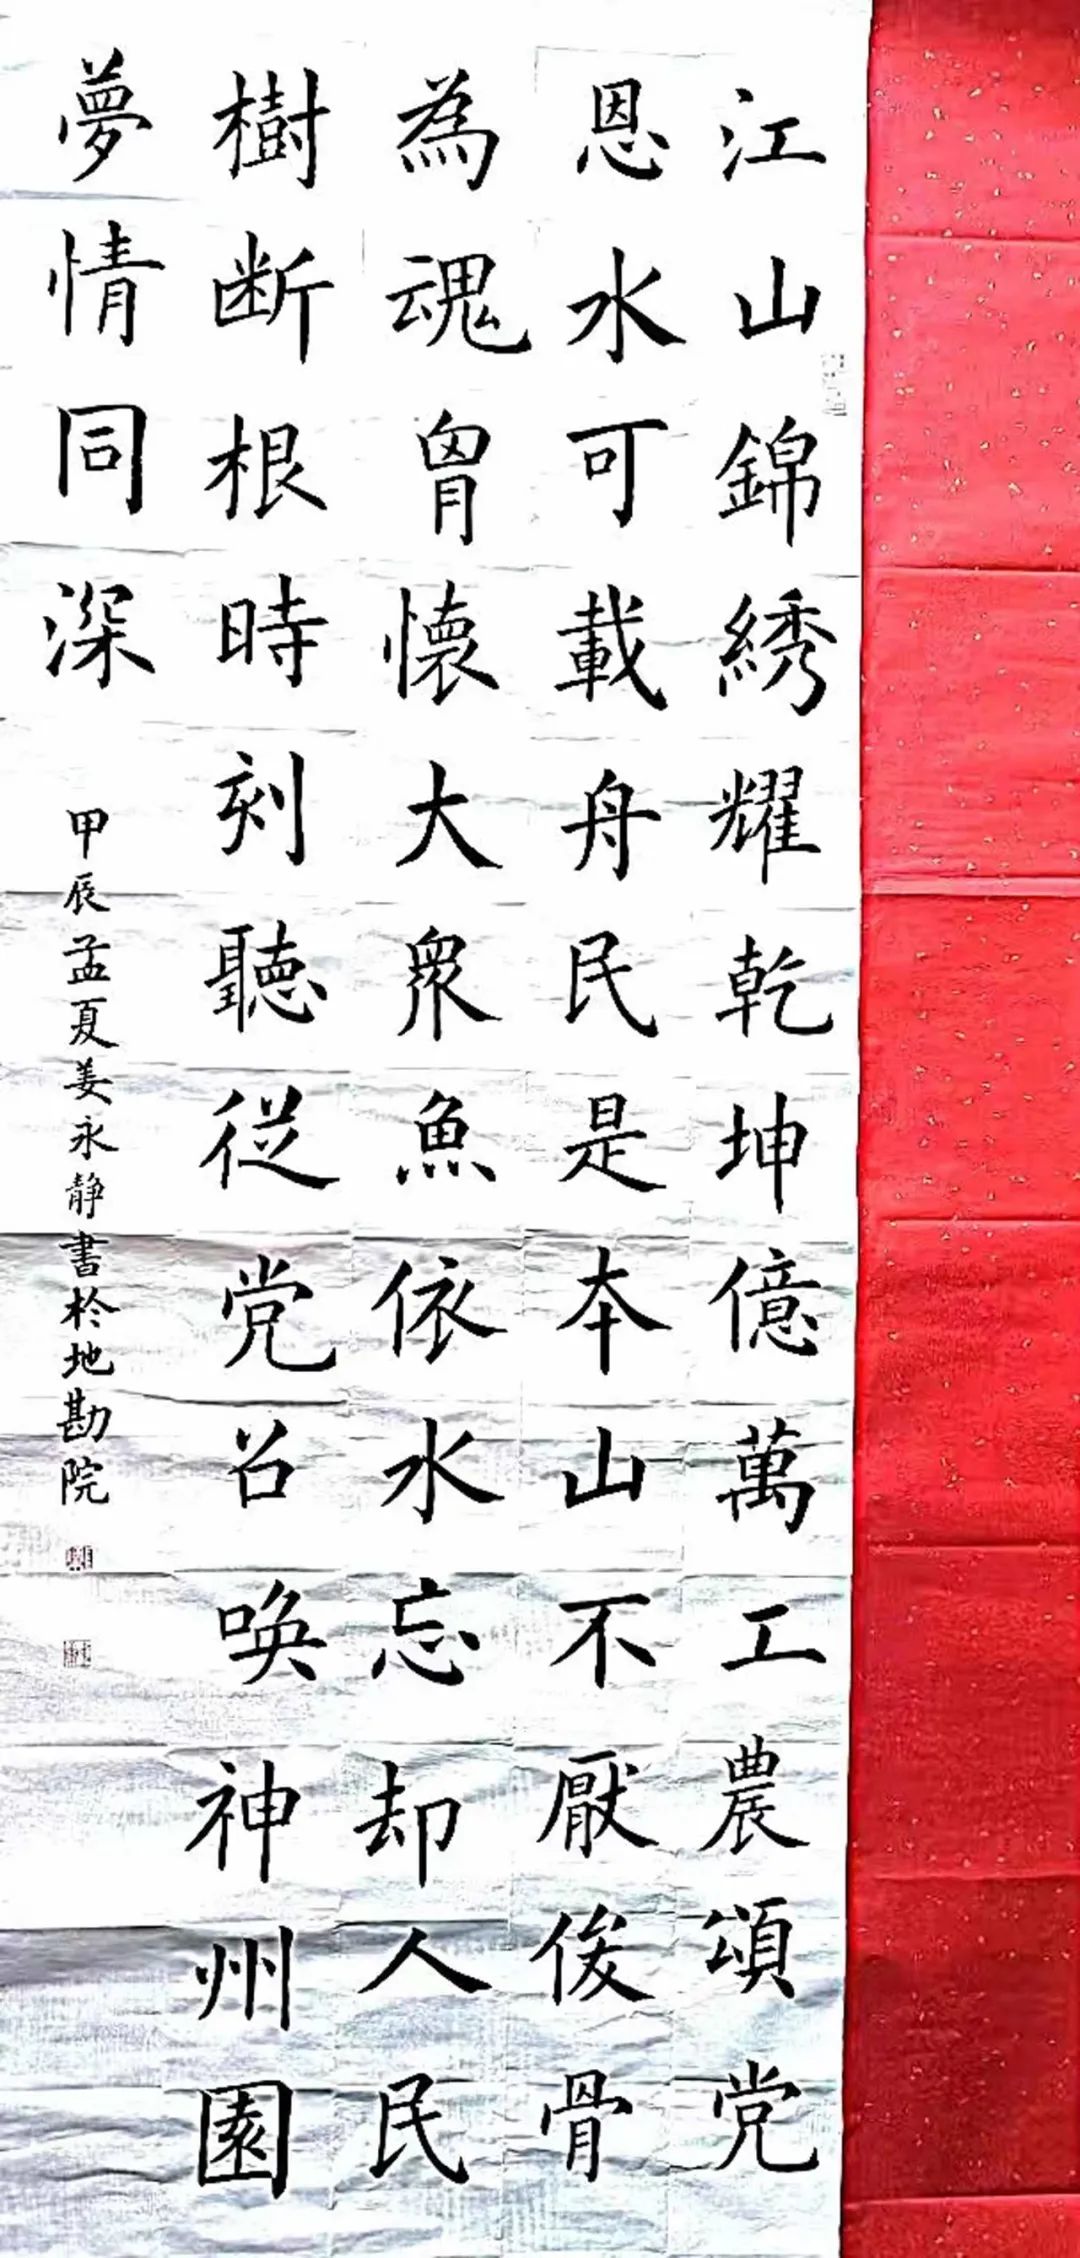 江山錦綉耀乾坤億萬工農頌党
恩水可載舟民是本山不厭俊骨
為魂胷懷大衆魚依水忘却人民
樹断根時刻聽従党召唤神州園
夢情同深
甲辰孟夏姜永静書於地勘院